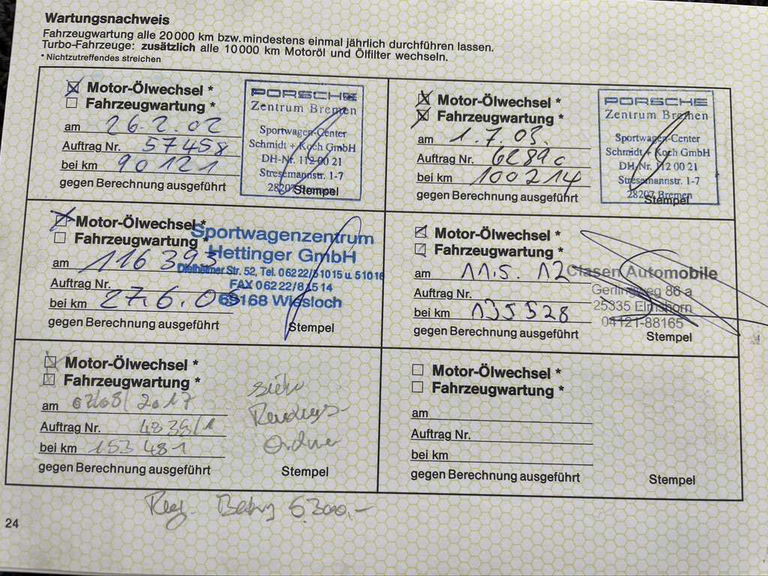 Wartungsnachweis
Fahrzeugwartung alle 20 000 km bzw. mindestens einmal jährlich durchführen lassen.
Turbo-Fahrzeuge: zusätzlich alle 10 000 km Motoröl und Ölfilter wechseln.
* Nichtzutreffendes streichen
Motor-Ölwechsel *
Fahrzeugwartung *
am 26 2 02
Auftrag Nr. 57458
bei km 90 121
gegen Berechnung ausgeführt
PORSCHE
Zentrum Bremen
Sportwagen-Center
Schmidt + Koch GmbH
DH-Nr. 112 00 21
Stresemannstr. 1-7
28207 Bremen
Stempel
Motor-Ölwechsel *
Fahrzeugwartung *
am 1.7.03.
Auftrag Nr.
bei km 100 214
gegen Berechnung ausgeführt
PORSCHE
Zentrum Bremen
Sportwagen-Center
Schmidt + Koch GmbH
DH-Nr. 112 00 21
Stresemannstr. 1-7
28207 Bremen
Stempel
Motor-Ölwechsel *
Fahrzeugwartung *
am 116 393
Auftrag Nr.
bei km 27.6.
gegen Berechnung ausgeführt
Sportwagenzentrum
Hettinger GmbH
Dielheimer Str. 52, Tel. 0 62 22/5 10 15 u. 5 10 16
FAX 0 62 22/8 15 14
69168 Wiesloch
Stempel
Motor-Ölwechsel *
Fahrzeugwartung *
am 11.5. 12
Auftrag Nr.
bei km 135 528
gegen Berechnung ausgeführt
Clasen Automobile
Gerlingweg 86 a
25335 Elmshorn
04121-88165
Stempel
Motor-Ölwechsel *
Fahrzeugwartung *
am 07/08/2017
Auftrag Nr. 4835/1
bei km 153 481
gegen Berechnung ausgeführt
siehe
Ordner
Stempel
Motor-Ölwechsel *
Fahrzeugwartung *
am
Auftrag Nr.
bei km
gegen Berechnung ausgeführt
Stempel
6300,-
24